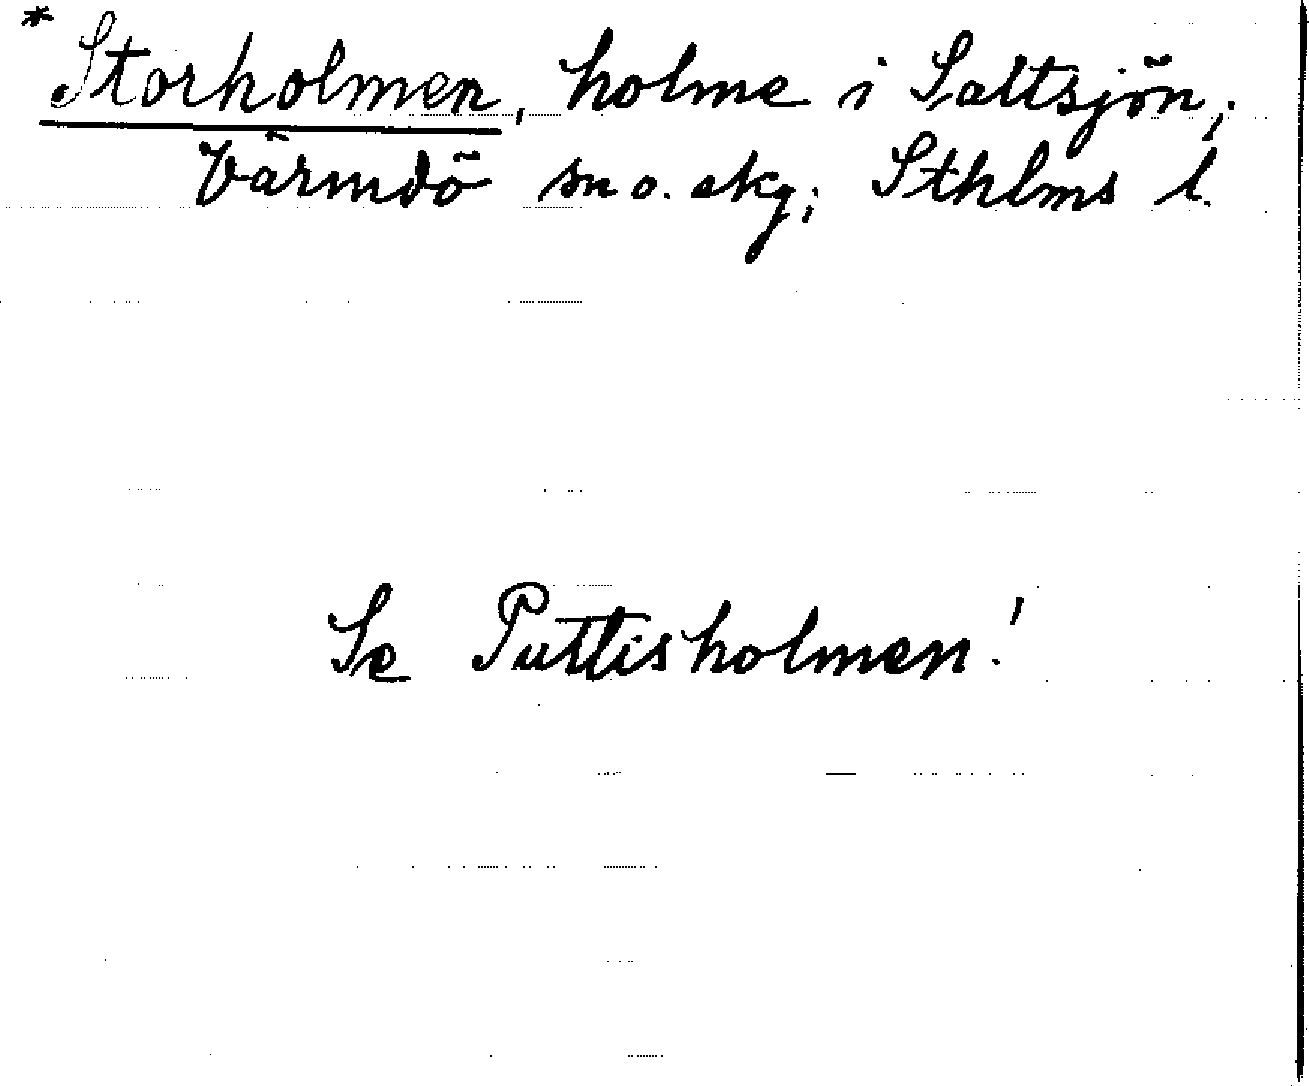 * Storholmen, holme i Saltsjön;
Värmdö sn o. skg; Sthlms l.
Se Puttisholmen!